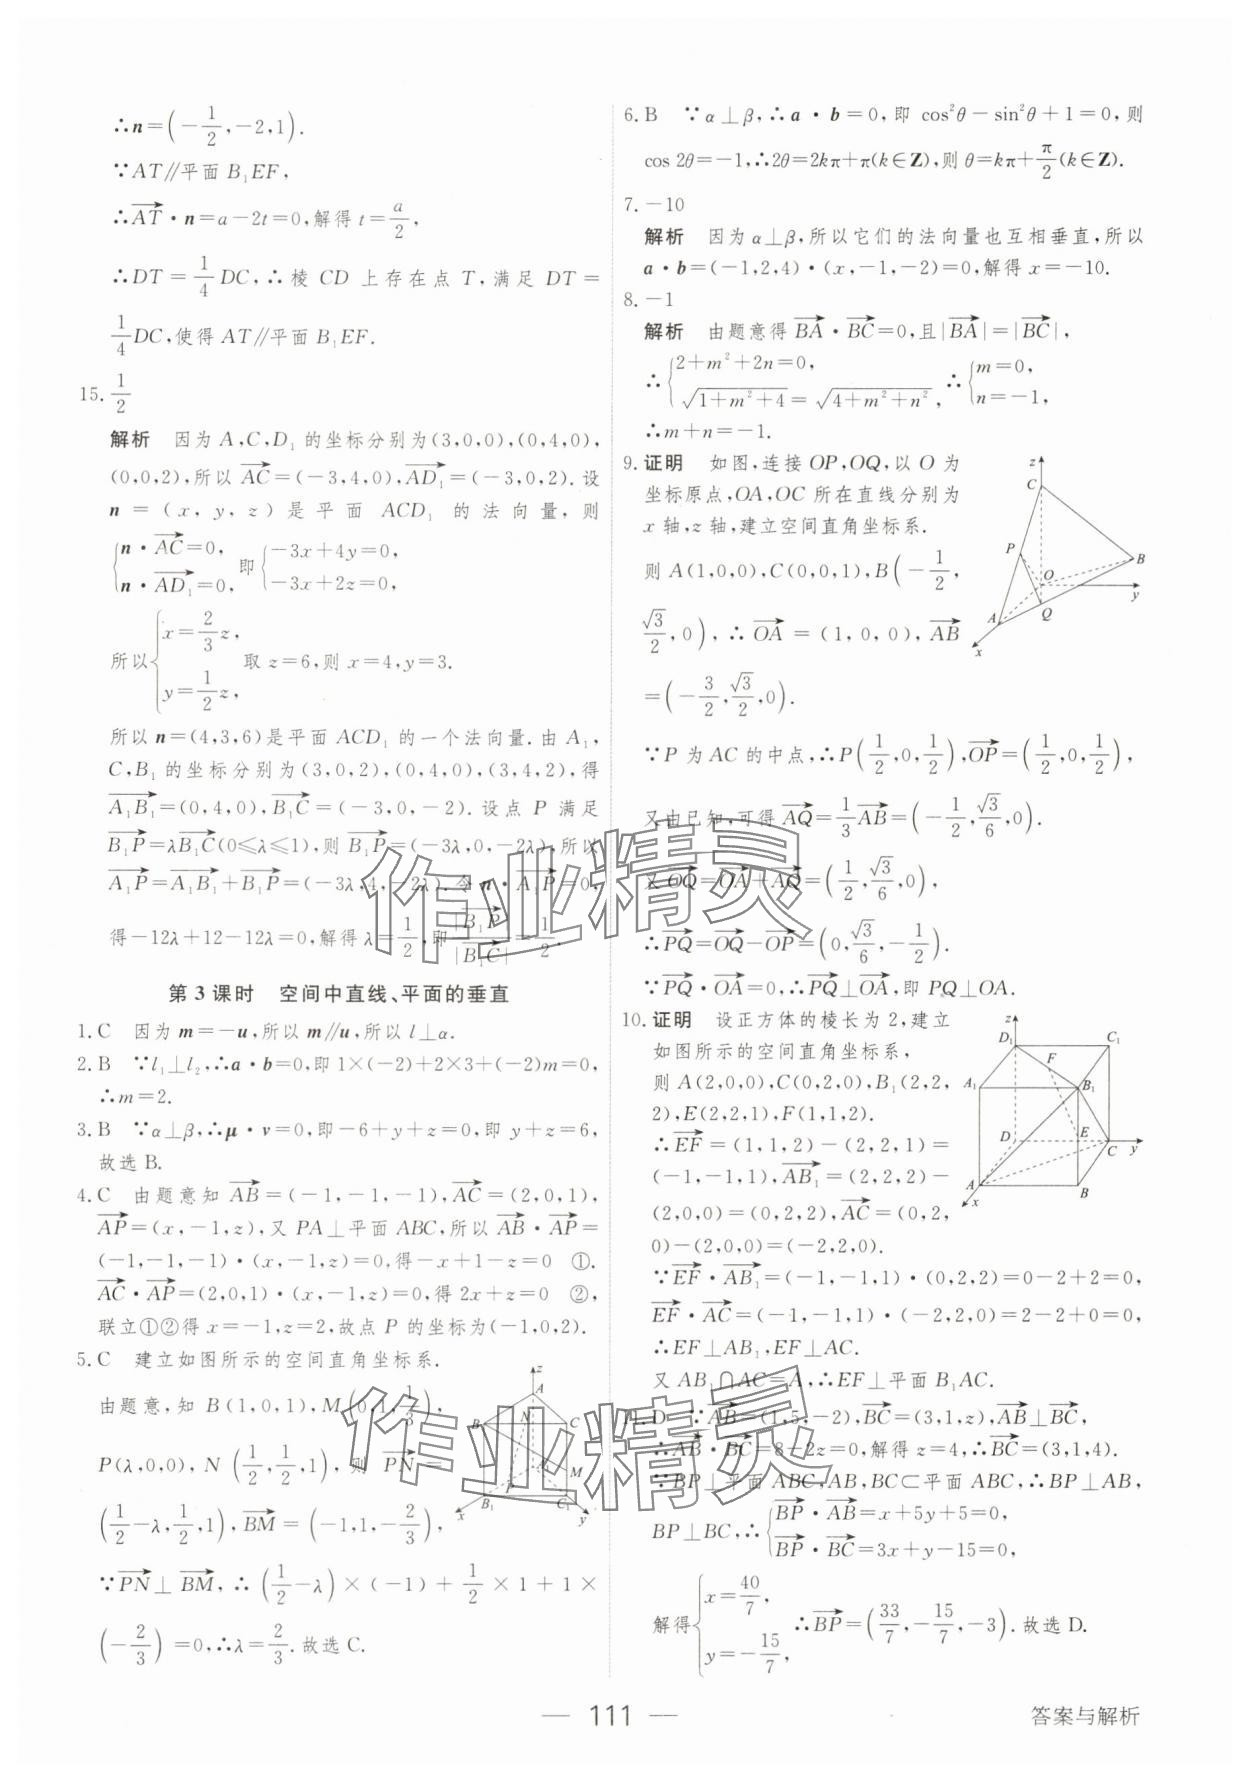 ∴n=(-1/2,-2,1).
∵AT∥平面 B₁EF,
∴AT→·n=a-2t=0,解得 t=a/2,
∴DT=1/4DC,∴棱 CD 上存在点 T,满足 DT=
1/4DC,使得 AT∥平面 B₁EF.
15.1/2
解析 因为 A,C,D₁ 的坐标分别为(3,0,0),(0,4,0),
(0,0,2),所以 AC→=(-3,4,0),AD₁→=(-3,0,2).设
n=(x,y,z)是平面 ACD₁ 的法向量,则
{n·AC→=0, n·AD₁→=0, 即{-3x+4y=0, -3x+2z=0,
所以{x=2/3z, y=1/2z, 取 z=6,则 x=4,y=3.
所以 n=(4,3,6)是平面 ACD₁ 的一个法向量.由 A₁,
C,B₁ 的坐标分别为(3,0,2),(0,4,0),(3,4,2),得
A₁B₁→=(0,4,0),B₁C→=(-3,0,-2).设点 P 满足
B₁P→=λB₁C→(0≤λ≤1),则 B₁P→=(-3λ,0,-2λ),所以
A₁P→=A₁B₁→+B₁P→=(-3λ,4,-2λ).令 n·A₁P→=0,
得-12λ+12-12λ=0,解得 λ=1/2,即|B₁P→|/|B₁C→|=1/2.
第 3 课时 空间中直线、平面的垂直
1.C 因为 m=-u,所以 m∥u,所以 l⊥α.
2.B ∵l₁⊥l₂,∴a·b=0,即 1×(-2)+2×3+(-2)m=0,
∴m=2.
3.B ∵α⊥β,∴μ·v=0,即-6+y+z=0,即 y+z=6,
故选 B.
4.C 由题意知 AB→=(-1,-1,-1),AC→=(2,0,1),
AP→=(x,-1,z),又 PA⊥平面 ABC,所以 AB→·AP→=
(-1,-1,-1)·(x,-1,z)=0,得-x+1-z=0 ①.
AC→·AP→=(2,0,1)·(x,-1,z)=0,得 2x+z=0 ②,
联立①②得 x=-1,z=2,故点 P 的坐标为(-1,0,2).
5.C 建立如图所示的空间直角坐标系.
由题意,知 B(1,0,1),M(0,1,1/3),
P(λ,0,0),N(1/2,1/2,1),则 PN→=
(1/2-λ,1/2,1),BM→=(-1,1,-2/3),
∵PN→⊥BM→,∴(1/2-λ)×(-1)+1/2×1+1×
(-2/3)=0,∴λ=2/3.故选 C.
z
A
B
N
C
A₁
M
P
B₁
C₁
x
y
6.B ∵α⊥β,∴a·b=0,即 cos²θ-sin²θ+1=0,则
cos 2θ=-1,∴2θ=2kπ+π(k∈Z),则 θ=kπ+π/2(k∈Z).
7.-10
解析 因为 α⊥β,所以它们的法向量也互相垂直,所以
a·b=(-1,2,4)·(x,-1,-2)=0,解得 x=-10.
8.-1
解析 由题意得 BA→·BC→=0,且|BA→|=|BC→|,
∴{2+m²+2n=0, √(1+m²+4)=√(4+m²+n²), ∴{m=0, n=-1,
∴m+n=-1.
9.证明 如图,连接 OP,OQ,以 O 为
坐标原点,OA,OC 所在直线分别为
x 轴,z 轴,建立空间直角坐标系.
则 A(1,0,0),C(0,0,1),B(-1/2,
√3/2,0),∴OA→=(1,0,0),AB→
=(-3/2,√3/2,0).
z
C
P
B
O
y
A
Q
x
∵P 为 AC 的中点,∴P(1/2,0,1/2),OP→=(1/2,0,1/2),
又由已知,可得 AQ→=1/3AB→=(-1/2,√3/6,0).
又 OQ→=OA→+AQ→=(1/2,√3/6,0),
∴PQ→=OQ→-OP→=(0,√3/6,-1/2).
∵PQ→·OA→=0,∴PQ→⊥OA→,即 PQ⊥OA.
10.证明 设正方体的棱长为 2,建立
如图所示的空间直角坐标系,
则 A(2,0,0),C(0,2,0),B₁(2,2,
2),E(2,2,1),F(1,1,2).
∴EF→=(1,1,2)-(2,2,1)=
(-1,-1,1),AB₁→=(2,2,2)-
(2,0,0)=(0,2,2),AC→=(0,2,
0)-(2,0,0)=(-2,2,0).
z
D₁
C₁
F
A₁
B₁
D
E
C
y
A
B
x
∵EF→·AB₁→=(-1,-1,1)·(0,2,2)=0-2+2=0,
EF→·AC→=(-1,-1,1)·(-2,2,0)=2-2+0=0,
∴EF⊥AB₁,EF⊥AC.
又 AB₁∩AC=A,∴EF⊥平面 B₁AC.
11.D ∵AB→=(1,5,-2),BC→=(3,1,z),AB→⊥BC→,
∴AB→·BC→=8-2z=0,解得 z=4,∴BC→=(3,1,4).
∵BP⊥平面 ABC,AB,BC⊂平面 ABC,∴BP⊥AB,
BP⊥BC,∴{BP→·AB→=x+5y+5=0, BP→·BC→=3x+y-15=0,
解得{x=40/7, y=-15/7, ∴BP→=(33/7,-15/7,-3).故选 D.
作业精灵
作业精灵
— 111 —
答案与解析